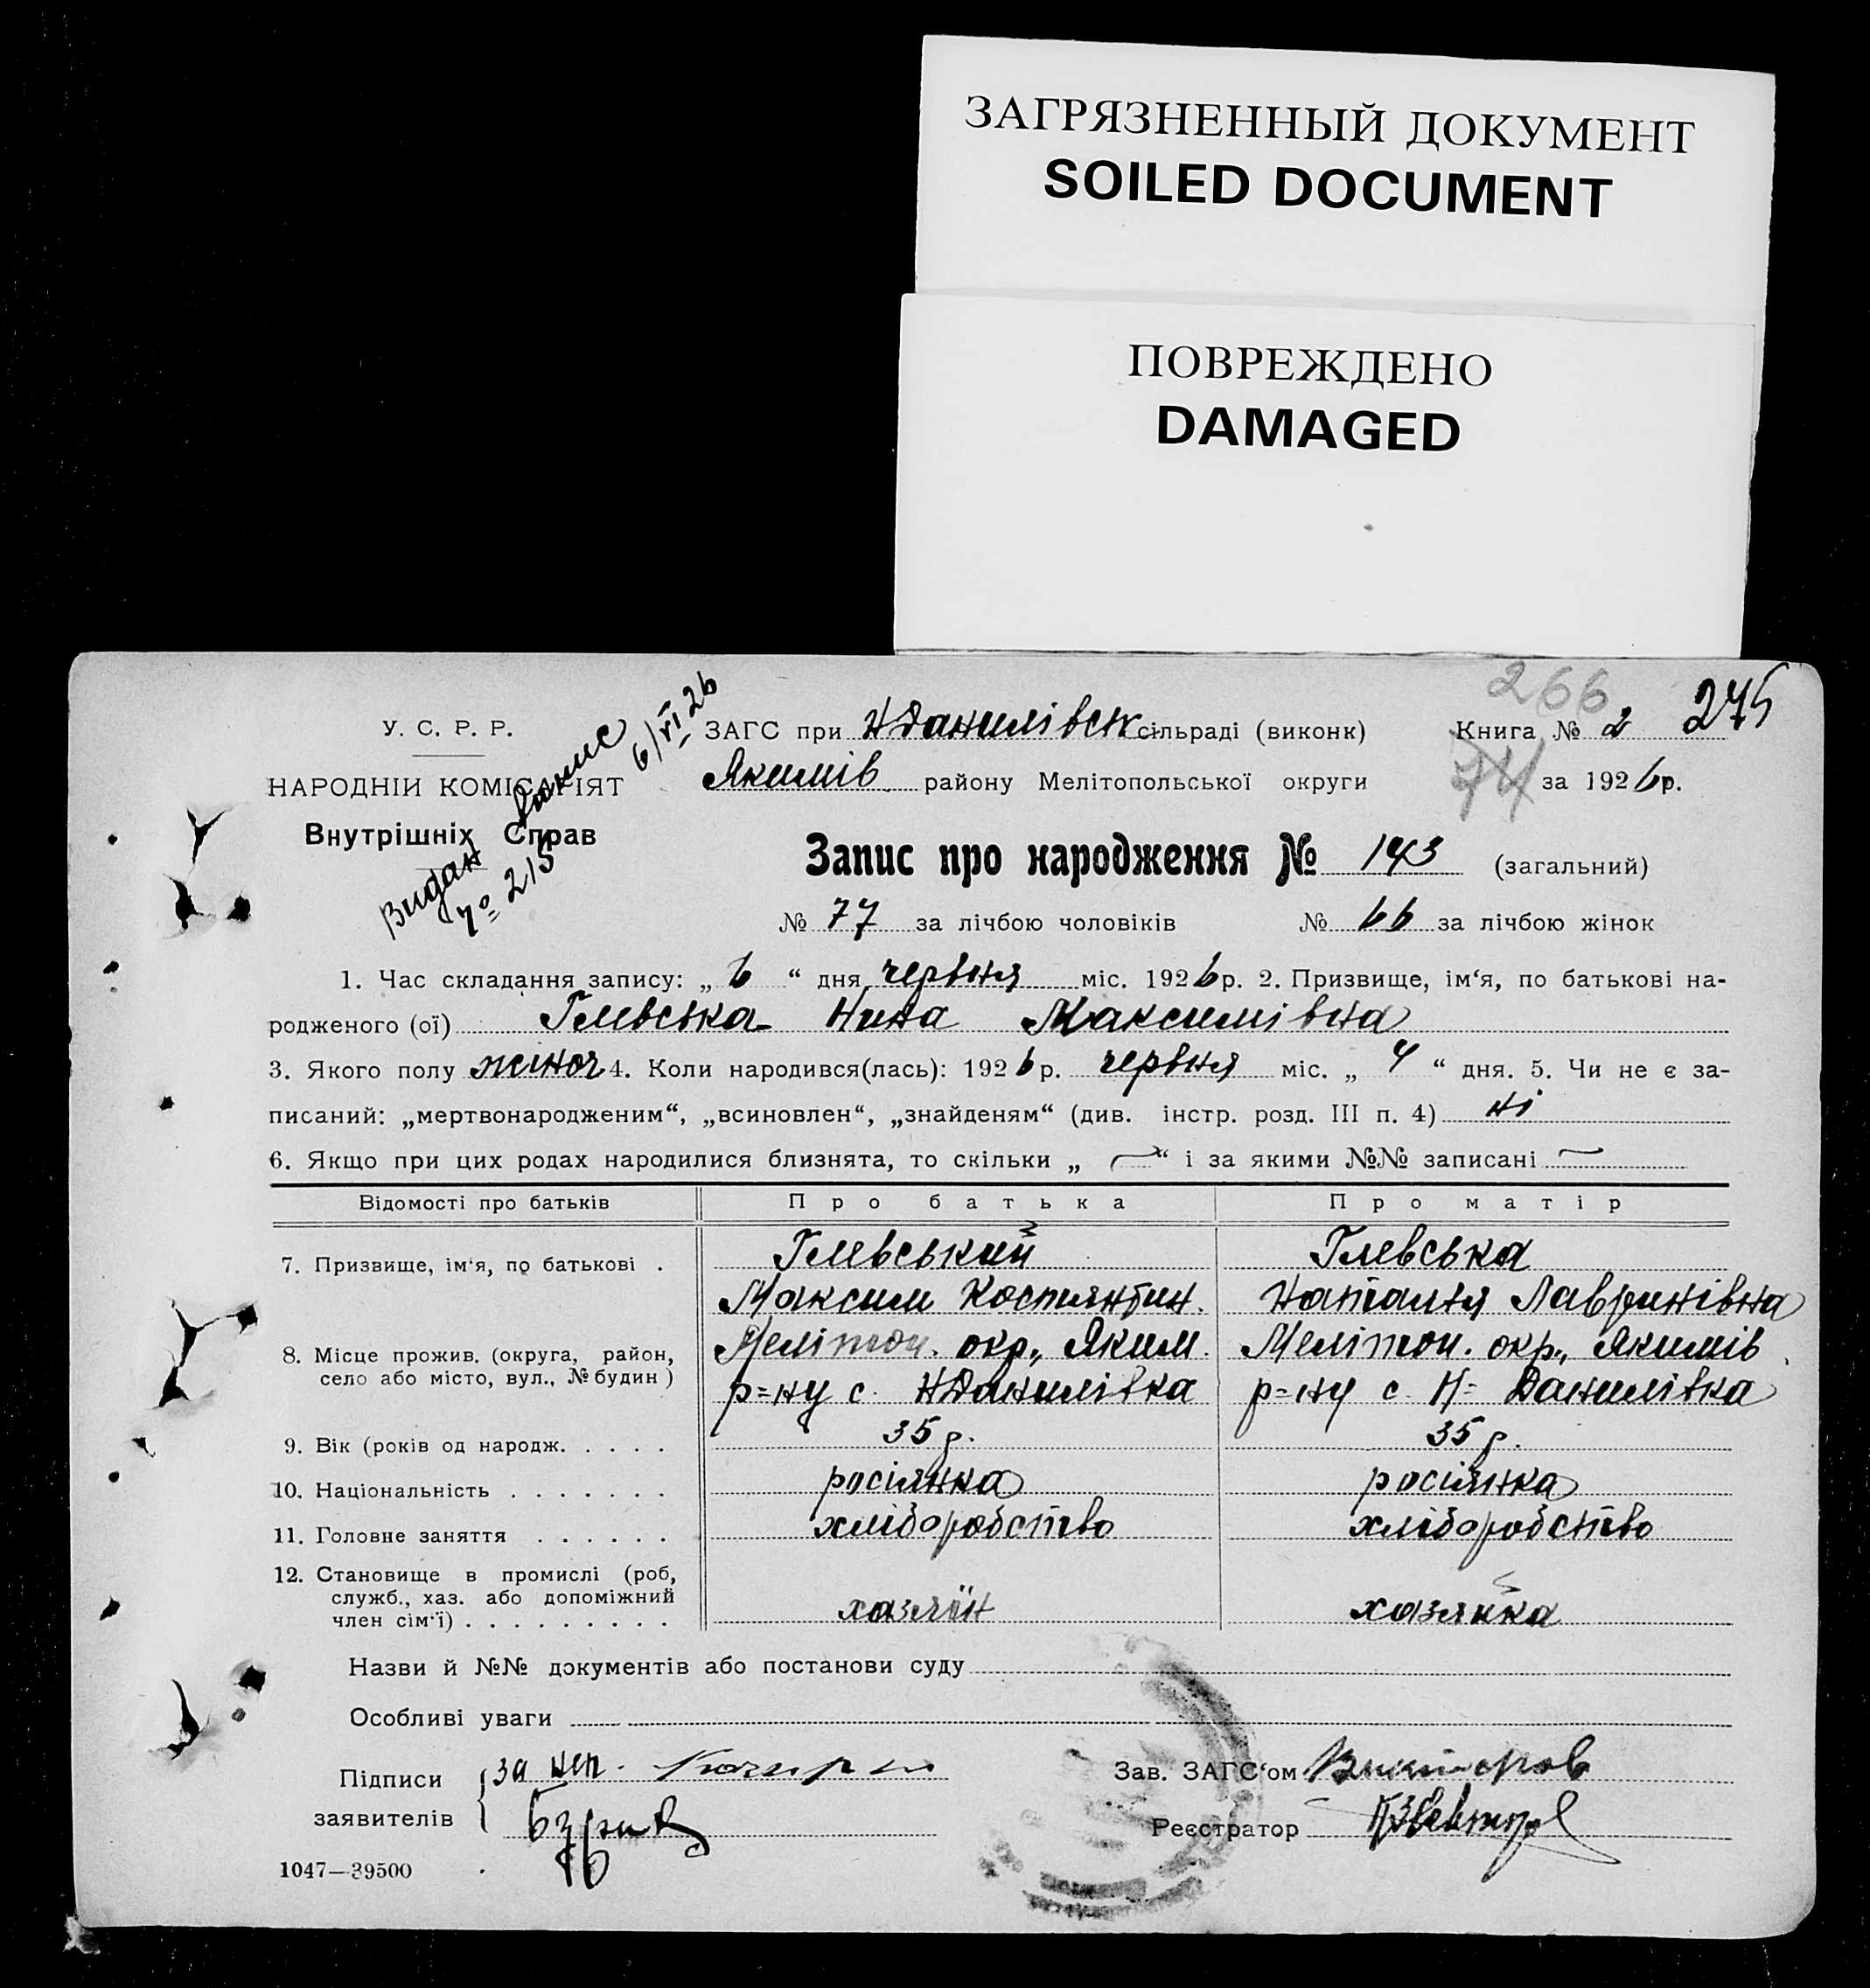 ЗАГРЯЗНЕННЫЙ ДОКУМЕНТ
SOILED DOCUMENT
ПОВРЕЖДЕНО
DAMAGED
266
У. С. Р. Р.
6/VI 26
ЗАГС при НДанилівськ сільраді (виконк)
Книга № 2
275
НАРОДНІЙ КОМІСАРІЯТ
Якимів району Мелітопольської округи
74
за 1926 р.
Внутрішніх Справ
Видан
№ 215
Запис про народження № 143 (загальний)
№ 77 за лічбою чоловіків № 66 за лічбою жінок
1. Час складання запису: „ 6 “ дня червня міс. 1926 р. 2. Призвище, ім'я, по батькові на-
родженого (ої) Глевська Нина Максимівна
3. Якого полу жіноч 4. Коли народився(лась): 1926 р. червня міс. „ 4 “ дня. 5. Чи не є за-
писаний: „мертвонародженим“, „всиновлен“, „знайденям“ (див. інстр. розд. III п. 4) ні
6. Якщо при цих родах народилися близнята, то скільки „ — “ і за якими №№ записані —
Відомості про батьків Про батька Про матір
7. Призвище, ім'я, по батькові . Глевський Глевська
Максим Костянтин. Наталія Лавринівна
8. Місце прожив. (округа, район, Мелітоп. окр., Яким. Мелітоп. окр., Якимів
село або місто, вул., № будин) р=ну с. НДанилівка р=ну с. Н= Данилівка
9. Вік (років од народж. . . . . 35 р. 35 р.
10. Національність . . . . . . . росіянка росіянка
11. Головне заняття . . . . . . хліборобство хліборобство
12. Становище в промислі (роб,
служб., хаз. або допоміжний
член сім'ї) . . . . . . . . . хазяїн хазяйка
Назви й №№ документів або постанови суду
Особливі уваги
Підписи за неп.
Зав. ЗАГС'ом
заявителів
Реєстратор
1047—39500